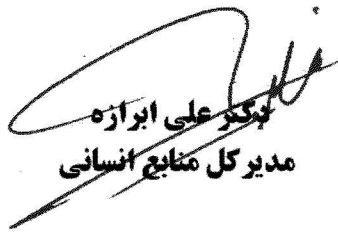 دکتر علی ابرازه
مدیر کل منابع انسانی